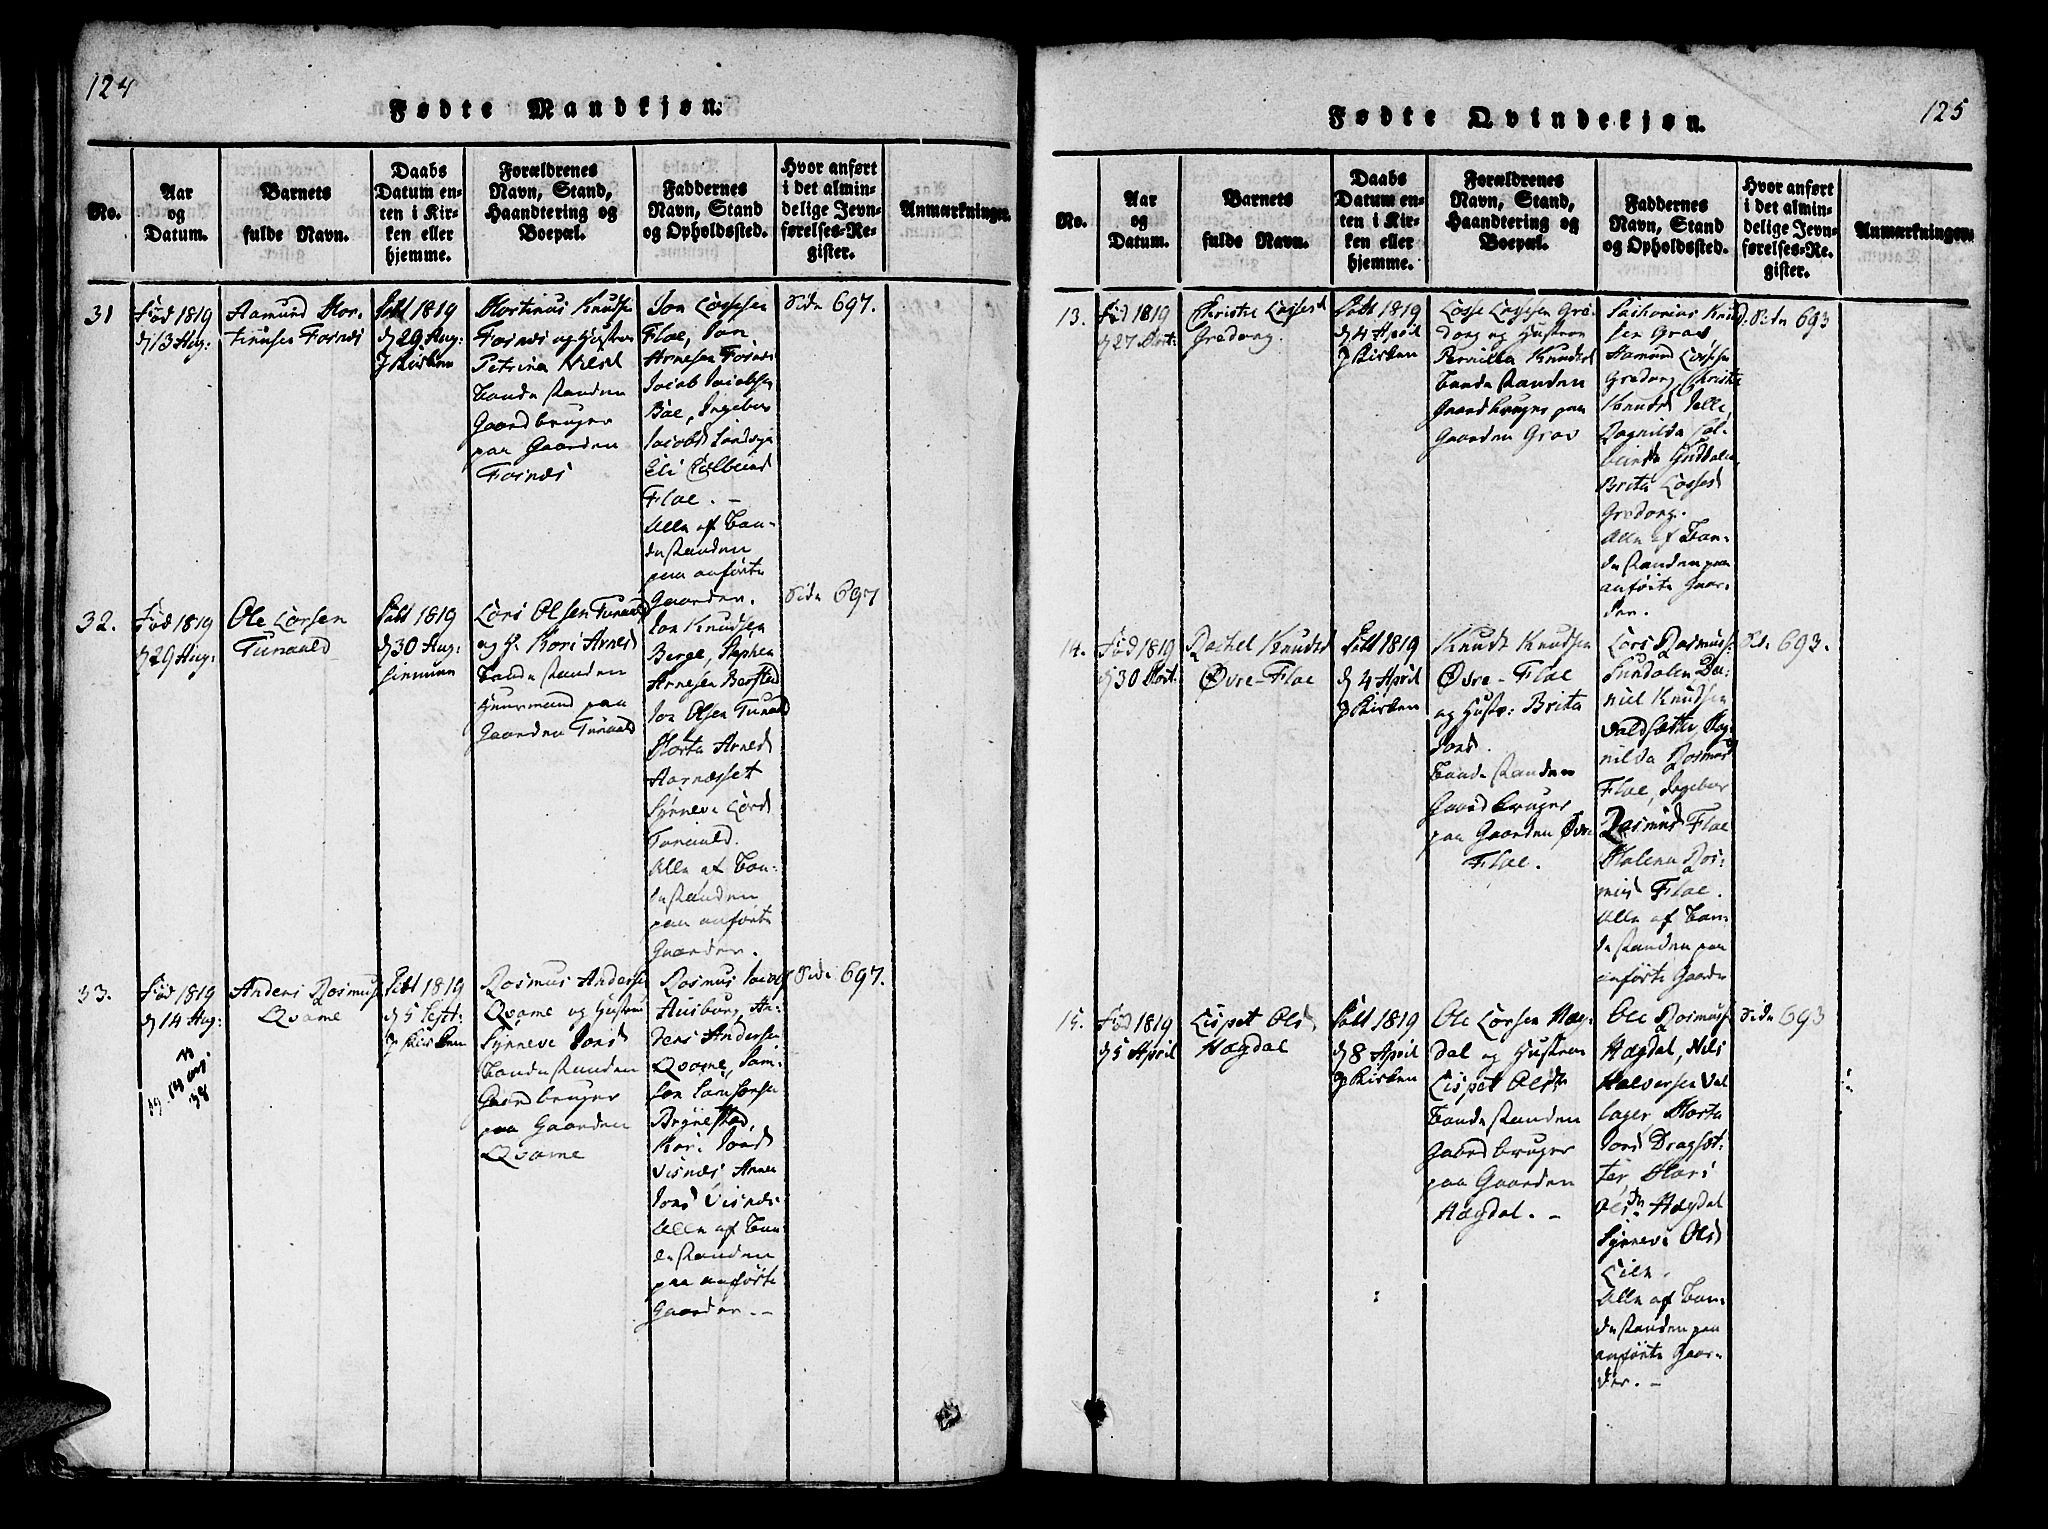 124
Fødte Mandkjøn.
No.
Aar
og
Datum.
Barnets
fulde Navn.
Daabs
Datum en-
ten i Kir-
ken eller
hjemme.
Forældrenes
Navn, Stand,
Haandtering og
Boepæl.
Faddernes
Navn, Stand
og Opholdssted.
Hvor anført
i det almin-
delige Jevn-
førelses-Re-
gister.
Anmærkninger.
31
Fød 1819
d 13 Aug:
Aamund Mor-
tinusen Fornæs
Døbt 1819
d 29 Aug:
J Kirken
Mortinus Knudsen
Fornæs og Hustru
Petrina Nilsd
Bondestanden
Gaardbruger
paa Gaarden
Fornæs
Jon Lassesen
Floe, Jon
Arnesen Fornæs
Jacob Jacobsen
Bøe, Ingebor
Jacobsd
Eli Colbeind
Floe. -
Alle af Bon-
destanden
paa anførte
Gaarder.
Side 697.
32.
Fød 1819
d 29 Aug:
Ole Larsen
Tunauld
Døbt 1819
d 30 Aug:
hiemme
Lars Olsen Tunauld
og H. Kari Arnesd
Bondestanden
Huusmand paa
Gaarden Tunauld
Jon Knudsen
Berge, Stephen
Arnesen Berstad
Jon Olsen Tunauld
Marta Arnesd
Aarnæsset
Synneve Larsd
Tunauld.
Alle af Bon-
destanden
paa anførte
Gaarder.
Side 697
33.
Fød 1819
d 14 Aug:
Anders Rasmus
Qvame
Døbt 1819
d 5 Sept:
J Kirken
Rasmus Andersen
Qvame og Hustru
Synneve Jonsd
Bondestanden
Gaardbruger
paa Gaarden
Qvame
Rasmus Jacobs
Husborg, An-
ders Andersen
Qvame, Sam-
son Samsonsen
Brynestad,
Kari Jonsd
Visnæs, Anne
Jonsd Visnæs
Alle af Bon-
destanden
paa anførte
Gaarder. -
Side 697.
125
Fødte Qvindekjøn.
No.
Aar
og
Datum.
Barnets
fulde Navn.
Daabs
Datum en-
ten i Kir-
ken eller
hjemme.
Forældrenes
Navn, Stand,
Haandtering og
Boepæl.
Faddernes
Navn, Stand
og Opholdssted.
Hvor anført
i det almin-
delige Jevn-
førelses-Re-
gister.
Anmærkninger.
13.
Fød 1819
d 27 Mart:
Christe Lassesd
Grodong.
Døbt 1819
d 4 April
J Kirken
Lasse Lassesen Gro-
dong og Hustrue
Pernilla Knudsd
Bondestanden
Gaardbruger paa
Gaarden Grov
Zacharias Knud-
sen Grov
Aamund Lassesen
Grodong, Christe
Knudsd
Ragnilda Col-
beinsd Guddalen
Brita Lassesd
Grodong.
Alle af Bon-
destanden paa
anførte Gaar-
der.
Side 693
14.
Fød 1819
d 30 Mart:
Rachel Knudsd
Øvre-Floe
Døbt 1819
d 4 April
J Kirken
Knudt Knudsen
Øvre-Floe
og Hustr: Brita
Jonsd.
Bondestanden
Gaardbruger
paa Gaarden Øvre
Floe.
Lars Rasmus:
Sundalen, Da-
niel Knudsen
Valdsætter, Rag-
nilda Rasmusd
Floe, Ingebor
Rasmusd Floe
Malena Ras-
musd Floe.
Alle af Bon-
destanden paa
anførte Gaarde
Side 693.
15.
Fød 1819
d 5 April
Lispet Olsd
Hægdal
Døbt 1819
d 8 April
J Kirken
Ole Larsen Hæg-
dal og Hustrue
Lispet Olsdt
Bondestanden
Gaardbruger
paa Gaarden
Hægdal. -
Ole Rasmus:
Hægdal, Nils
Halversen Val
lager, Marta
Jonsd Dragsæt-
ter, Mari
Olsdtr. Hægdal
Synneve Olsd
Lien.
Alle af Bon-
destanden paa
anførte Gaar-
der. -
Side 693